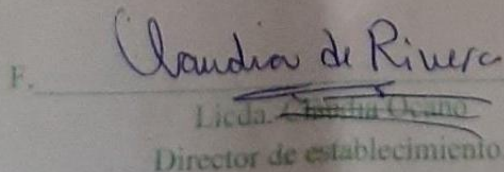 Claudia de Rivera
F.
Licda. Claudia Ocano
Director de establecimiento